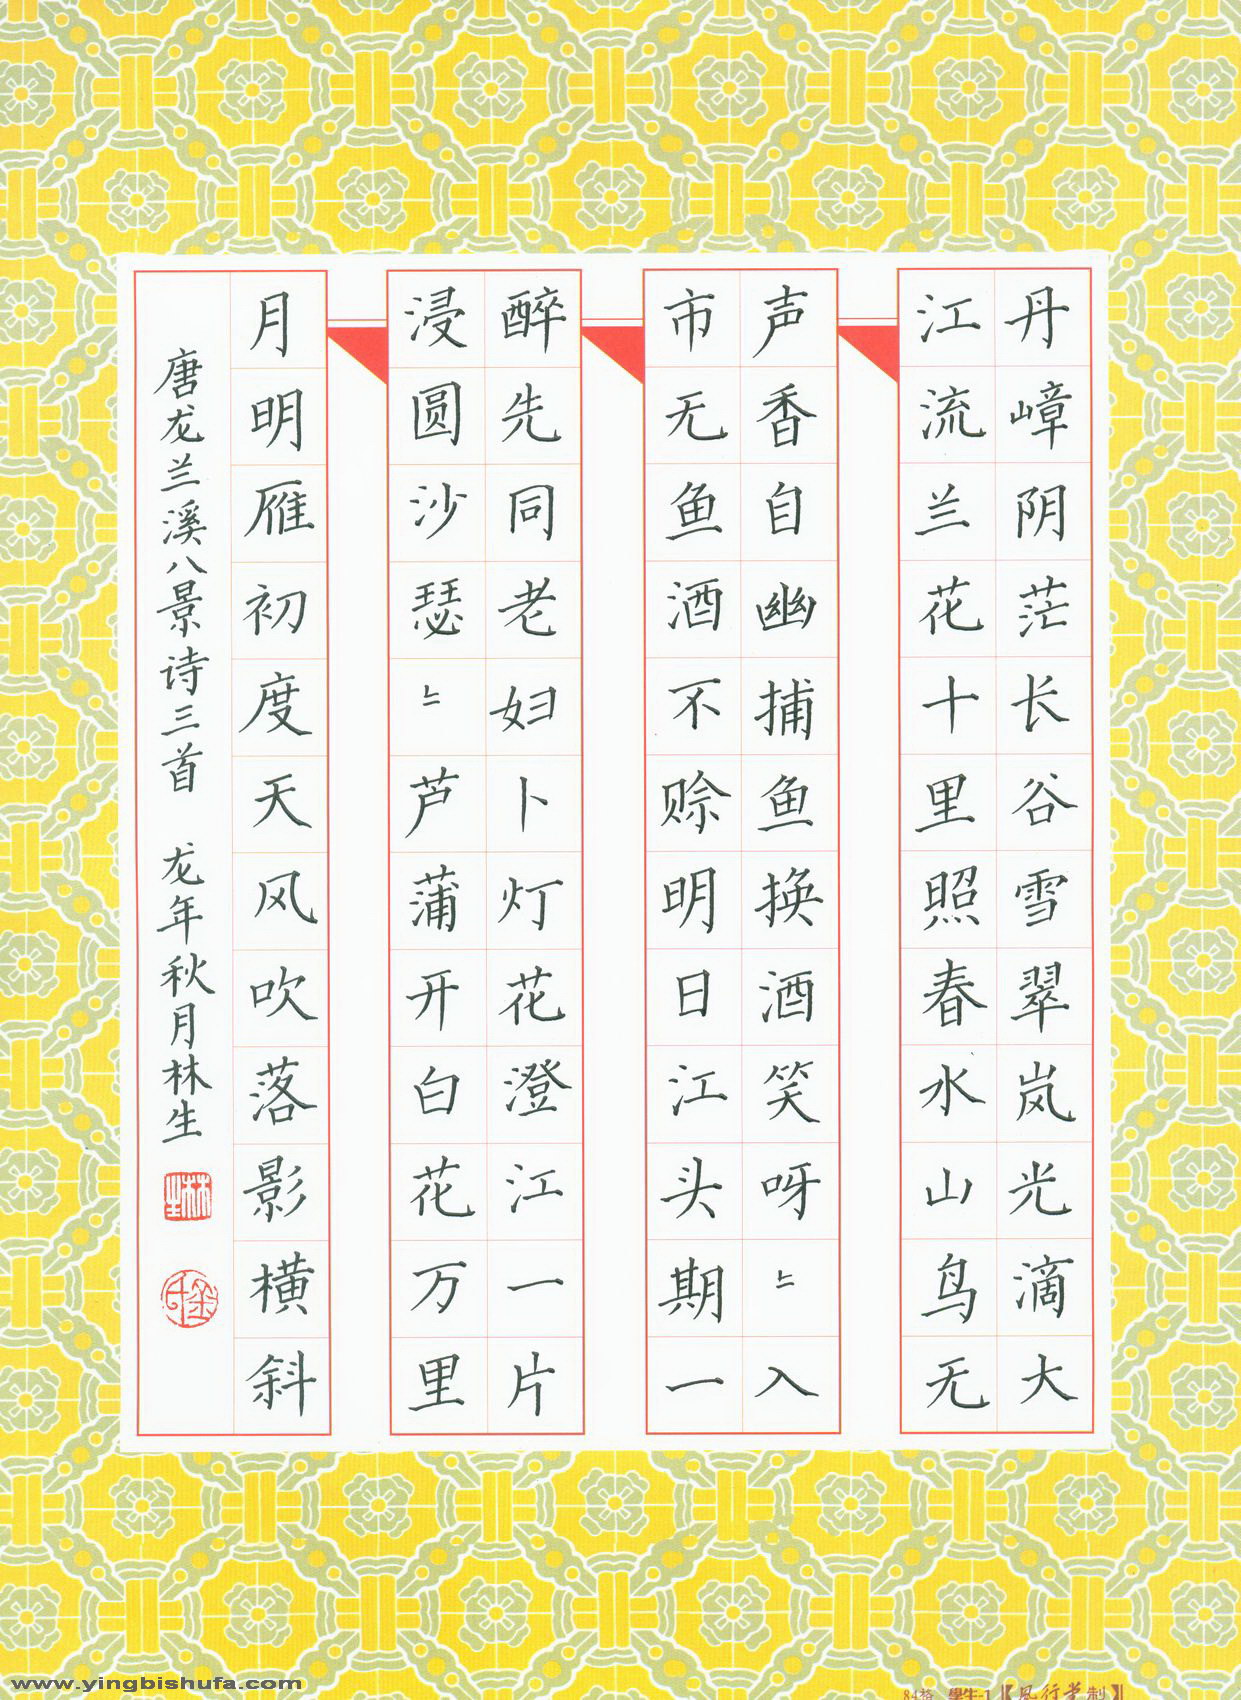 丹嶂阴茫长谷雪翠岚光滴大
江流兰花十里照春水山鸟无
声香自幽捕鱼换酒笑呀〻入
市无鱼酒不赊明日江头期一
醉先同老妇卜灯花澄江一片
浸圆沙瑟〻芦蒲开白花万里
月明雁初度天风吹落影横斜
唐龙兰溪八景诗三首 龙年秋月林生
林生
www.yingbishufa.com
84格 學生-1【風行堂制】